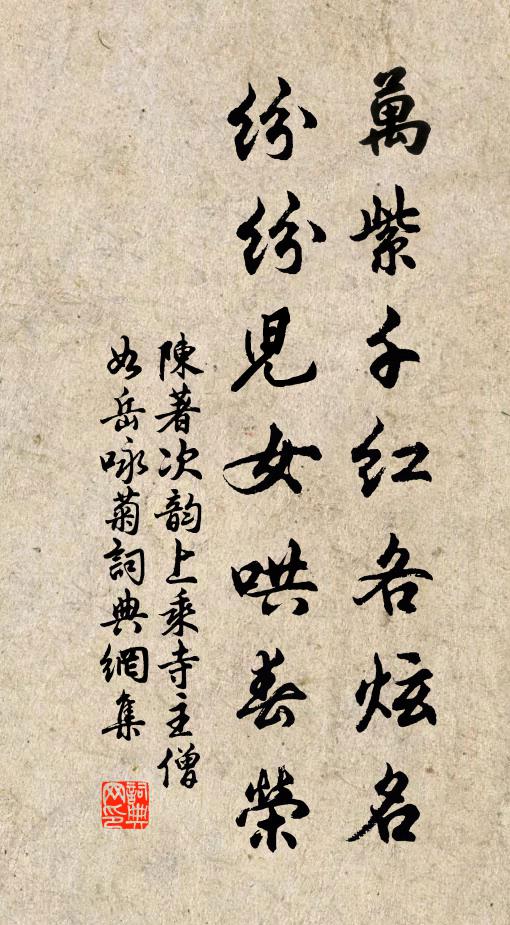 萬紫千紅各炫名
紛紛兒女哄春榮
陳著次韵上乘寺主僧
如岳咏菊詞典網集
詞典网印